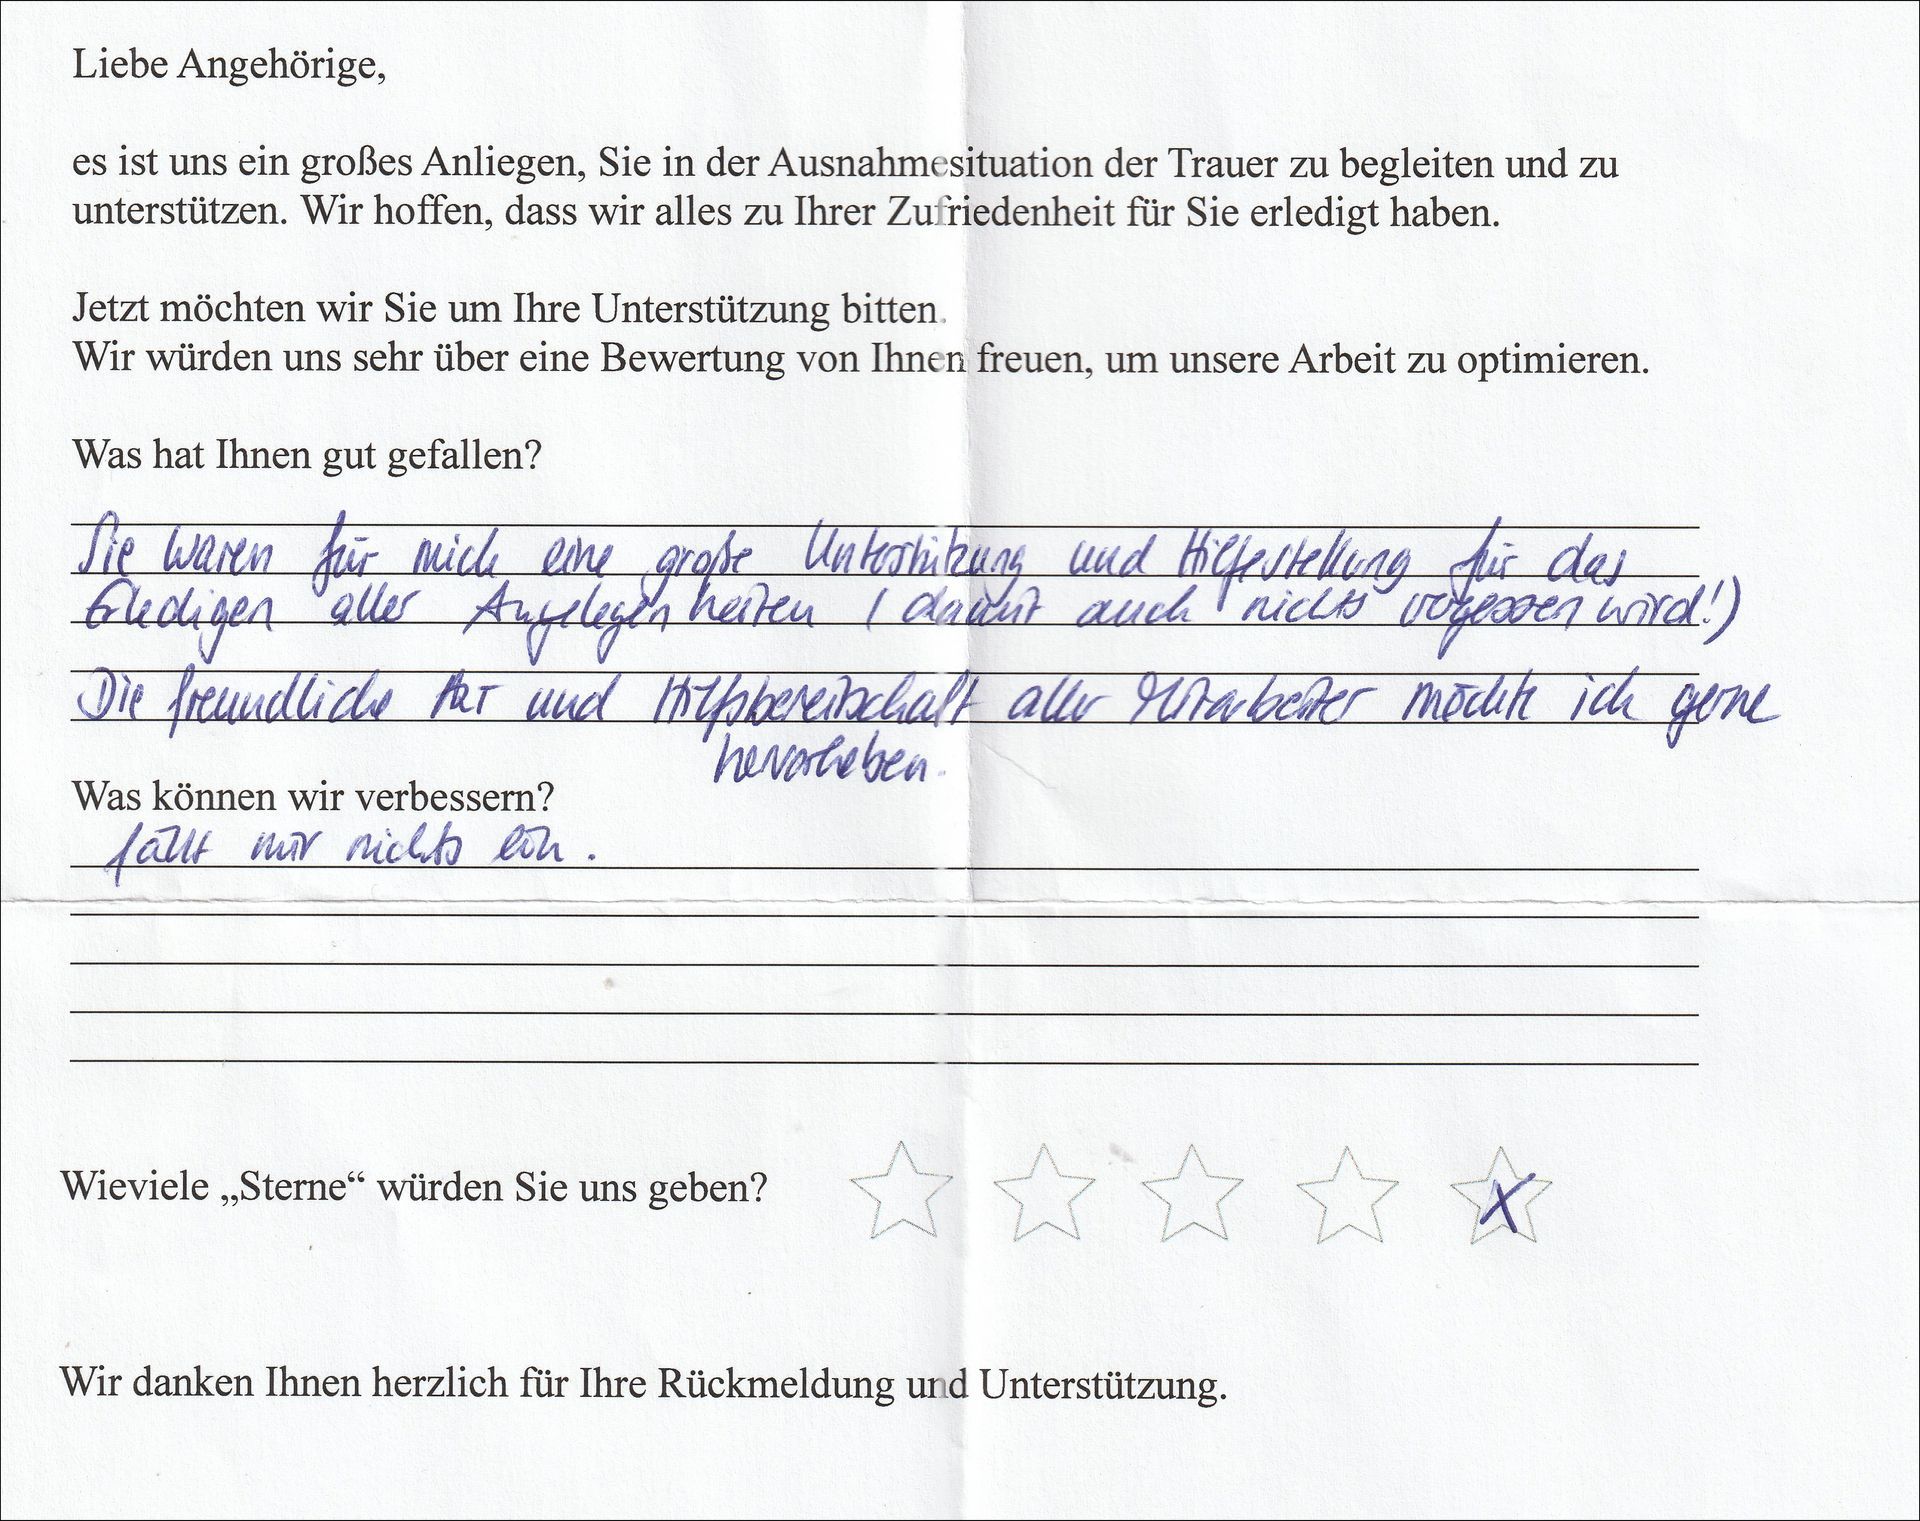 Liebe Angehörige,
es ist uns ein großes Anliegen, Sie in der Ausnahmesituation der Trauer zu begleiten und zu
unterstützen. Wir hoffen, dass wir alles zu Ihrer Zufriedenheit für Sie erledigt haben.
Jetzt möchten wir Sie um Ihre Unterstützung bitten.
Wir würden uns sehr über eine Bewertung von Ihnen freuen, um unsere Arbeit zu optimieren.
Was hat Ihnen gut gefallen?
Sie waren für mich eine große Unterstützung und Hilfestellung für das
Erledigen aller Angelegenheiten (damit auch nichts vergessen wird!)
Die freundliche Art und Hilfsbereitschaft aller Mitarbeiter möchte ich gerne
hervorheben.
Was können wir verbessern?
fällt mir nichts ein.
Wieviele „Sterne“ würden Sie uns geben? X
Wir danken Ihnen herzlich für Ihre Rückmeldung und Unterstützung.